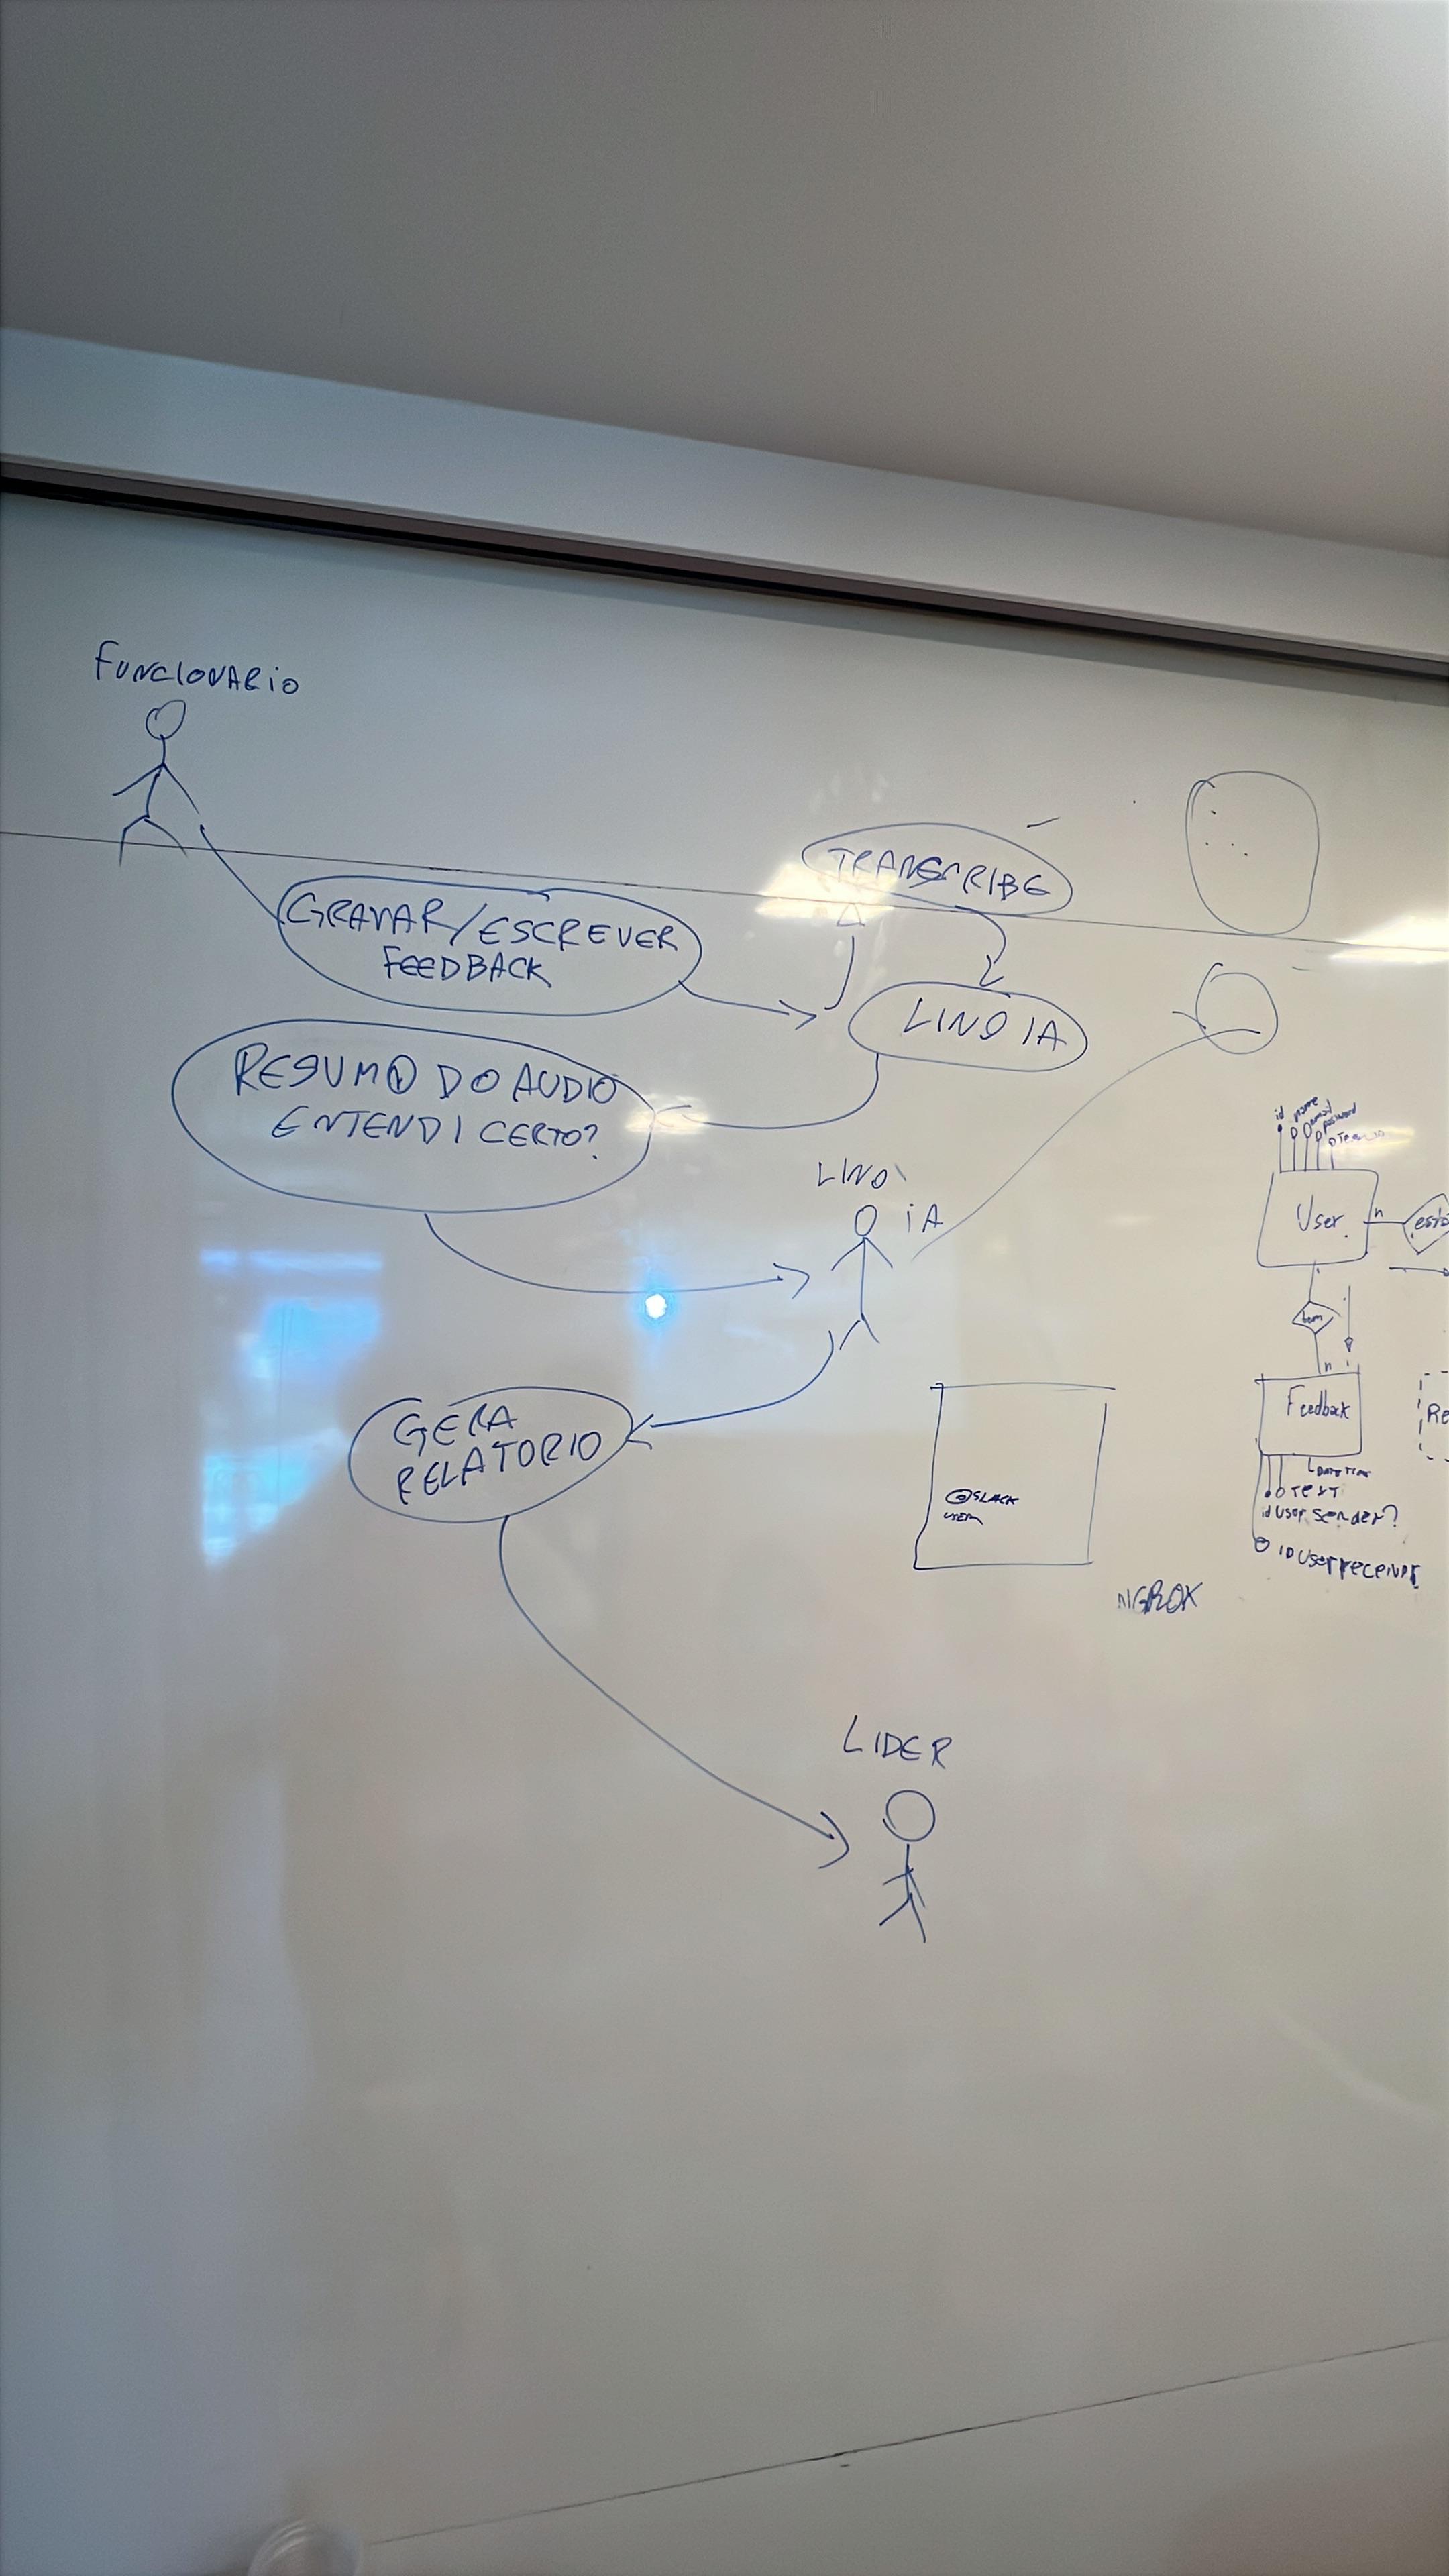 FUNCIONARIO
GRAVAR/ESCREVER
FEEDBACK
TRANSCRIBE
LINO IA
RESUMO DO AUDIO
ENTENDI CERTO?
LINO
iA
GERA
RELATORIO
LIDER
@SLACK
NGROK
id
name
email
password
User
n
tem
n
Feedback
DATETIME
TEXT
id user sender?
ID User receiver
Re